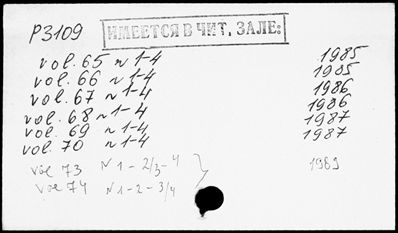 P3109 ИМЕЕТСЯ В ЧИТ. ЗАЛЕ:
vol. 65 N 1-4 1985
vol. 66 N 1-4 1985
vol. 67 N 1-4 1986
vol. 68 N 1-4 1986
vol. 69 N 1-4 1987
vol. 70 N 1-4 1987
vol 73 N 1 - 2/3 - 4 } 1989
vol 74 N 1 - 2 - 3/4